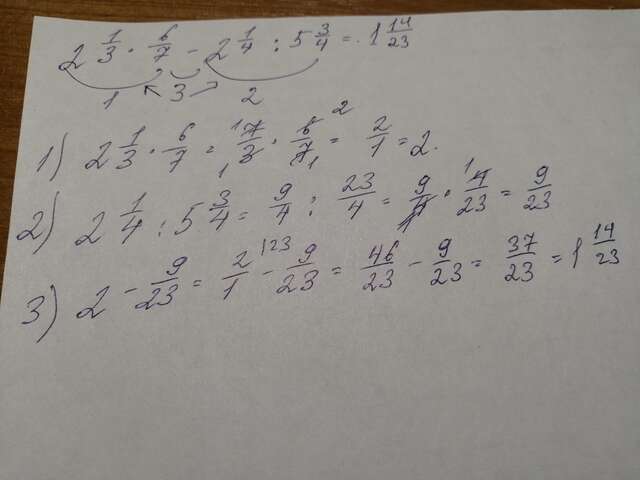 2 1/3 · 6/7 - 2 1/4 : 5 3/4 = 1 14/23
1 3 2
1) 2 1/3 · 6/7 = 7/3 · 6/7 = 2/1 = 2.
2) 2 1/4 : 5 3/4 = 9/4 : 23/4 = 9/4 · 4/23 = 9/23
3) 2 - 9/23 = 2/1 - 9/23 = 46/23 - 9/23 = 37/23 = 1 14/23